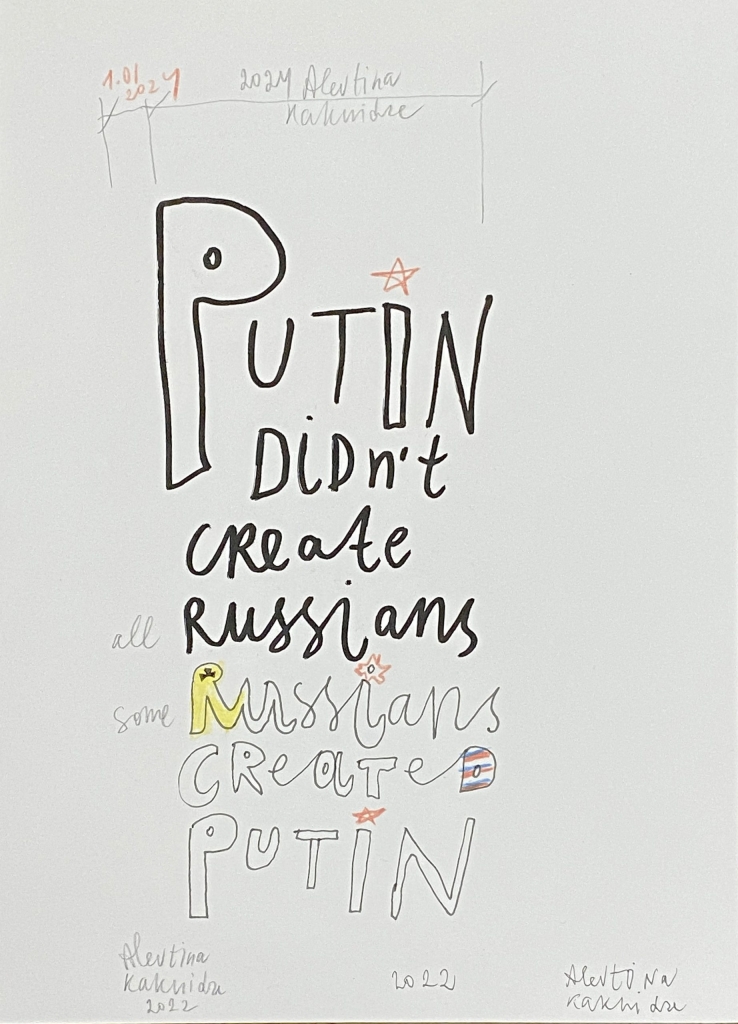 1.01
2024
2024 Alevtina
Kakhidze
PUTIN
DiDn't
CReate
all RussiAns
some Russians
CReateD
PUTIN
Alevtina
Kakhidze
2022
2022
Alevtina
Kakhidze